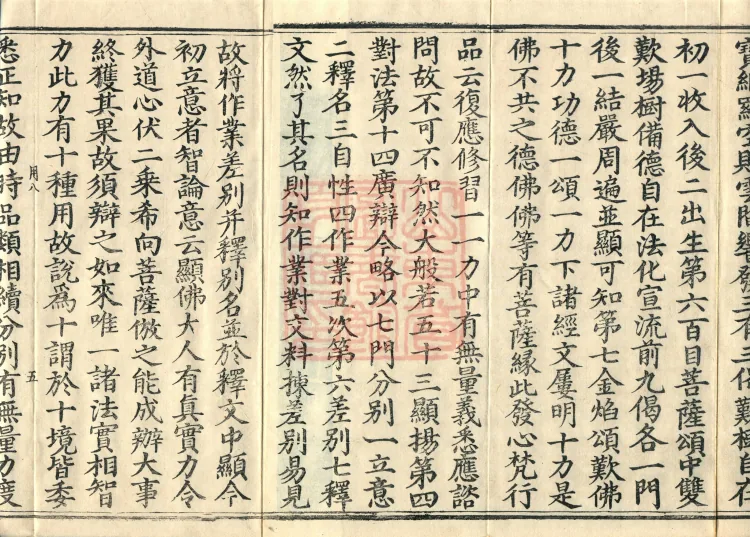 初一收入後二出生第六百目菩薩頌中雙
歎場樹備德自在法化宣流前九偈各一門
後一結嚴周遍並顯可知第七金焰頌歎佛
十力功德一頌一力下諸經文屢明十力是
佛不共之德佛佛等有菩薩緣此發心梵行
品云復應修習一一力中有無量義悉應諮
問故不可不知然大般若五十三顯揚第四
對法第十四廣辯今略以七門分別一立意
二釋名三自性四作業五次第六差別七釋
文然了其名則知作業對文料揀差別易見
故將作業差別并釋別名並於釋文中顯今
初立意者智論意云顯佛大人有真實力令
外道心伏二乘希向菩薩倣之能成辦大事
終獲其果故須辯之如來唯一諸法實相智
力此力有十種用故說爲十謂於十境皆委
用八
五
悉正知故由時品類相續分別有無量力度